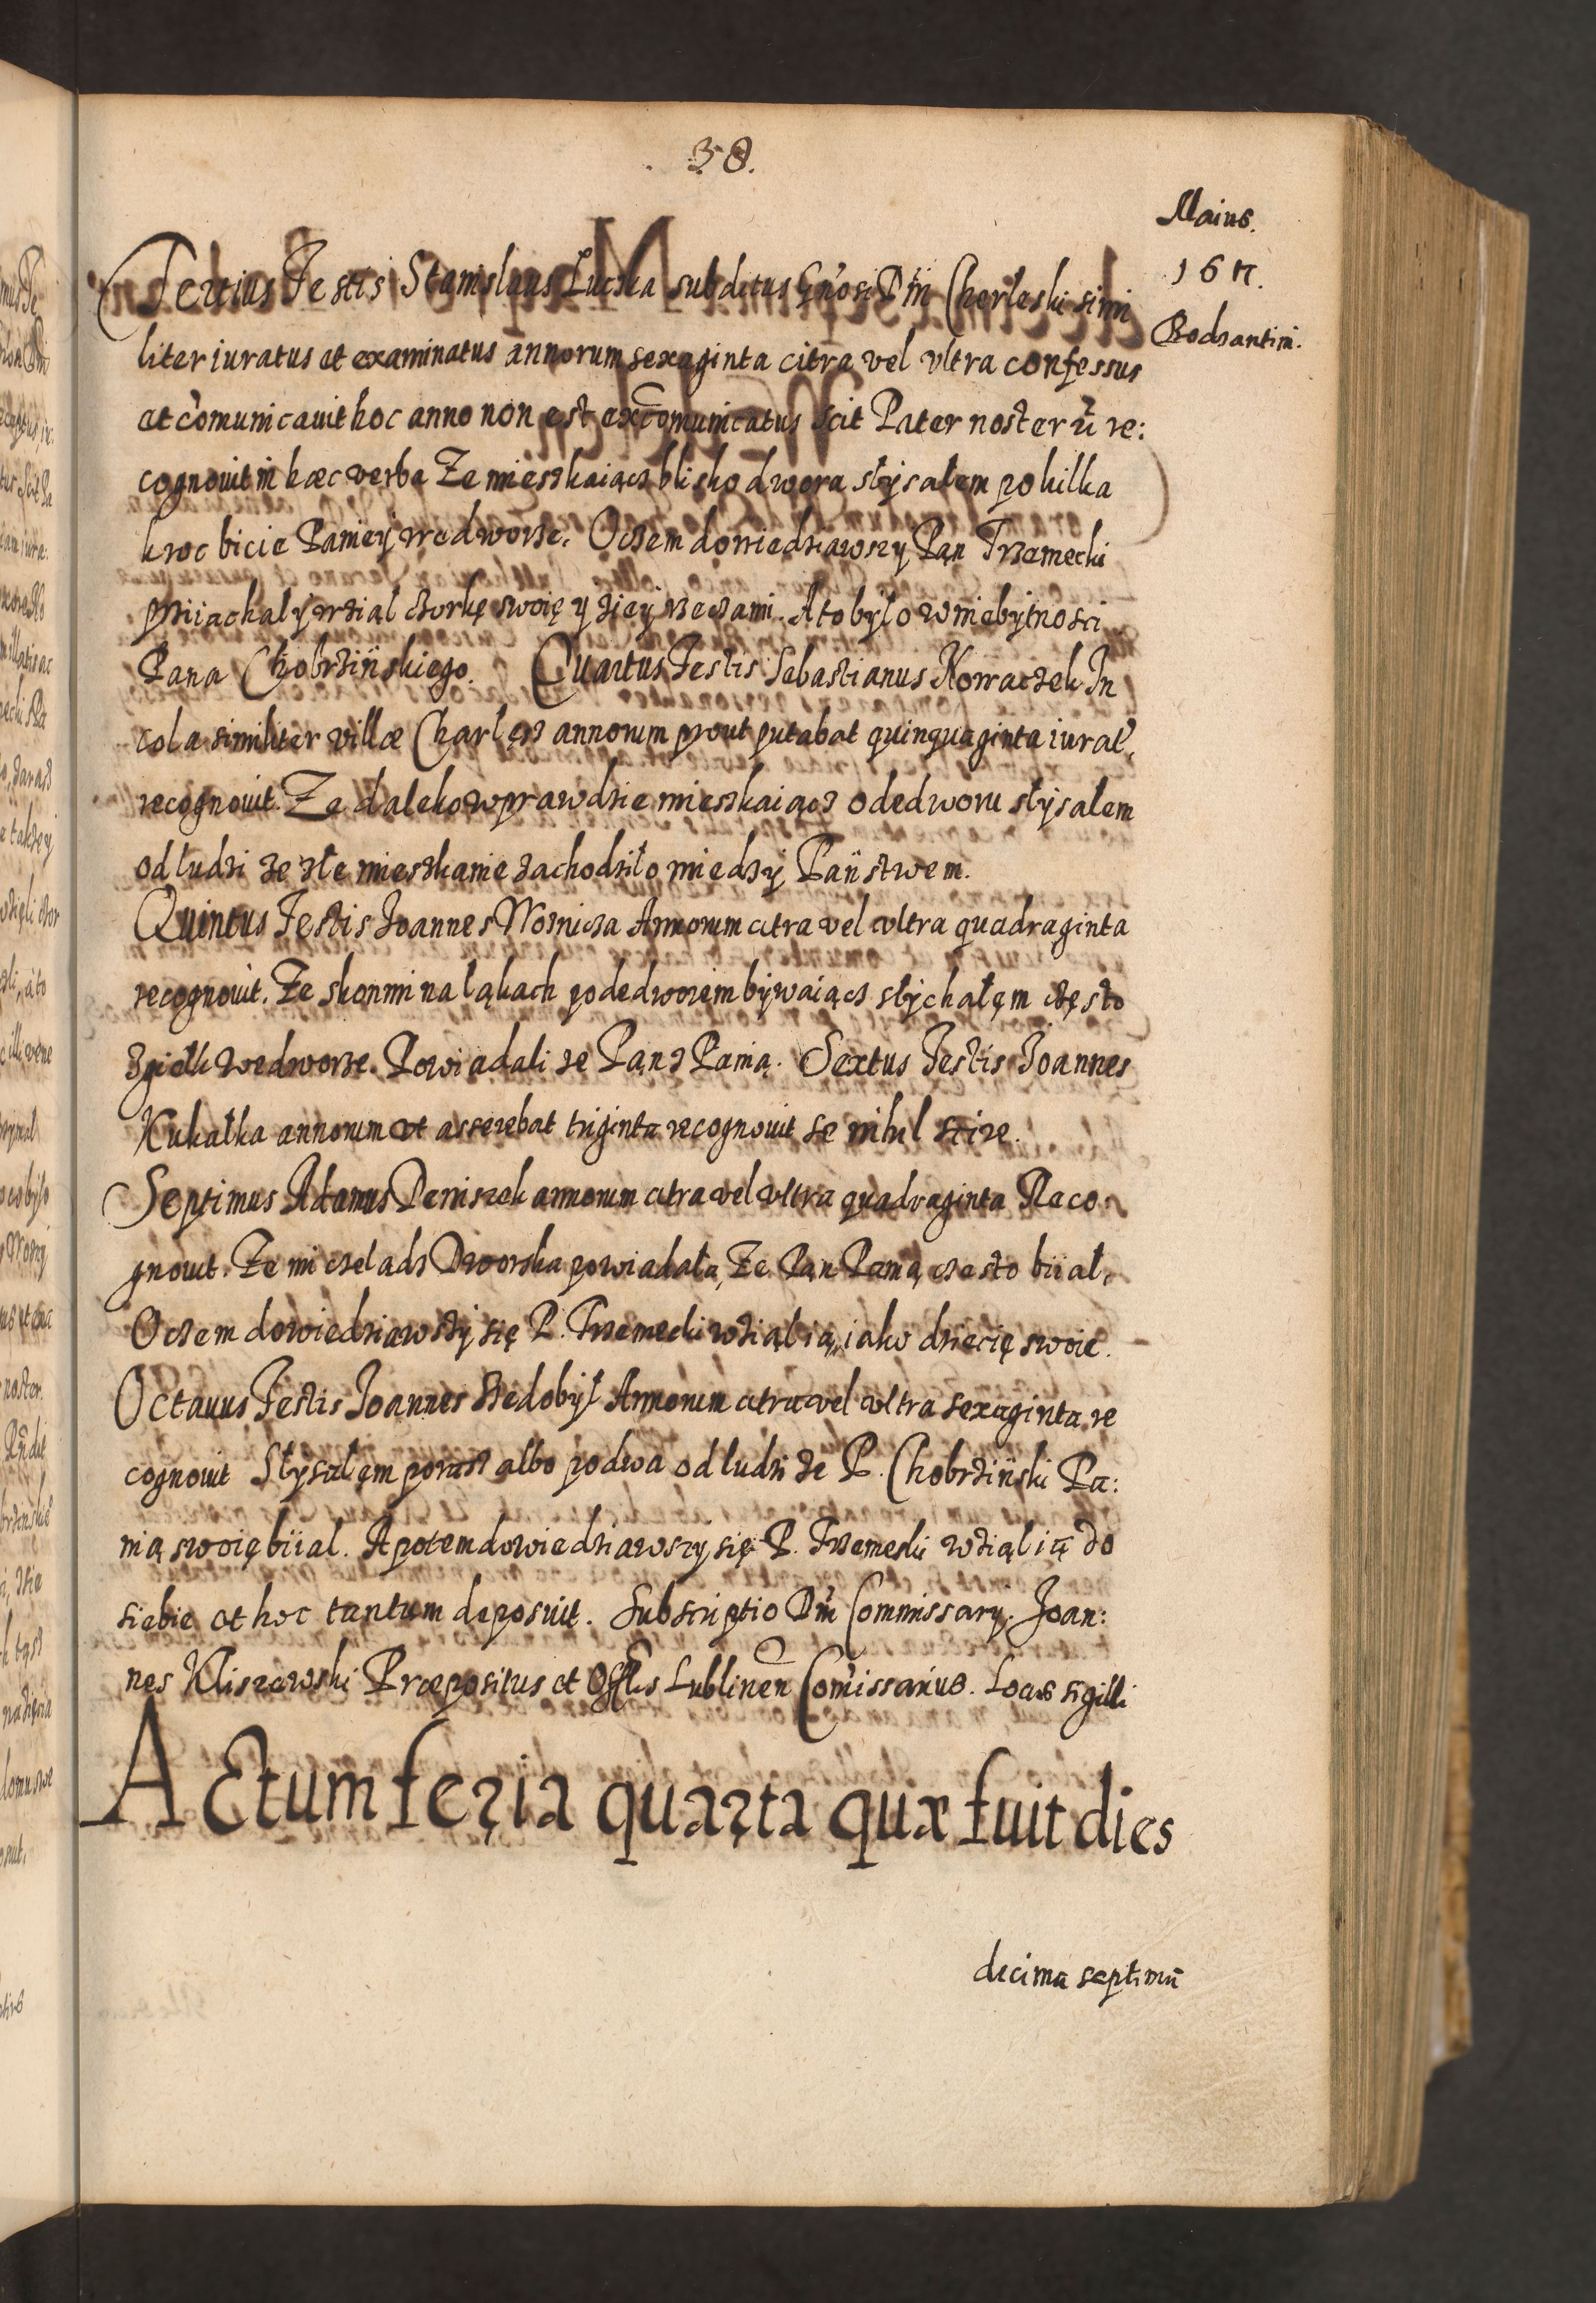 38.
Maius.
1617.
Bodzantini.
Tertius Testis Stanislaus Luczka subditus Gnosi Dni Charleski simi
liter iuratus et examinatus annorum sexaginta citra vel vltra confessus
et comunicauit hoc anno non est excomunicatus scit Pater noster ũ re:
cognouit in hæc verba Ze mieszkaiącz blisko dwora słysałem po kilka
kroc bicie Paniey we dworze. Oczem dowiedziawszy Pan Trzemecki
Priiachal y wział czorkę swoię y ziey rzeczami. A to było w niebytnosci
Pana Chobrzińskiego. Quartus Testis Sebastianus Kowaczek In
cola similiter villæ Charlęz annorum prout putabat quinquaginta iurat,
recognouit. Ze daleko wprawdzie mieszkaiącz odedworu słysałem
od ludzi ze złe mieszkanie zachodziło miedzy Państwem.
Quintus Testis Joannes Woznicza Annorum citra vel vltra quadraginta
recognouit. Ze skonmi na łąkach podedworem bywaiącz słychałęm często
zgiełk wedworze. Powiadali ze Pan z Panią. Sextus Testis Joannes
Kukałka annorum vt asserebat triginta recognouit se nihil scire.
Septimus Adamus Deniszek annorum citra vel vltra quadraginta Reco:
gnouit. Ze mi czeladz Dworska powiadała, Ze Pan Panią czesto biial.
Oczem dowiedziawszy się P. Trzemecki wział ią, iako dziecię swoie.
Octauus Testis Joannes Zedobył Annorum citra vel vltra sexaginta re
cognouit Słysałęm poraz albo podwa od ludzi ze P. Chobrziński Pa:
nią swoię biial. A potem dowiedziawszy się P. Trzemeski wział ią do
siebie et hoc tantum deposuit. Subscriptio Dni Commissarÿ. Joan:
nes Kliszewski Præpositus et Offlis Lublinen Comissarius. Locus sigilli
Actum feria quarta quæ fuit dies
decima septimã